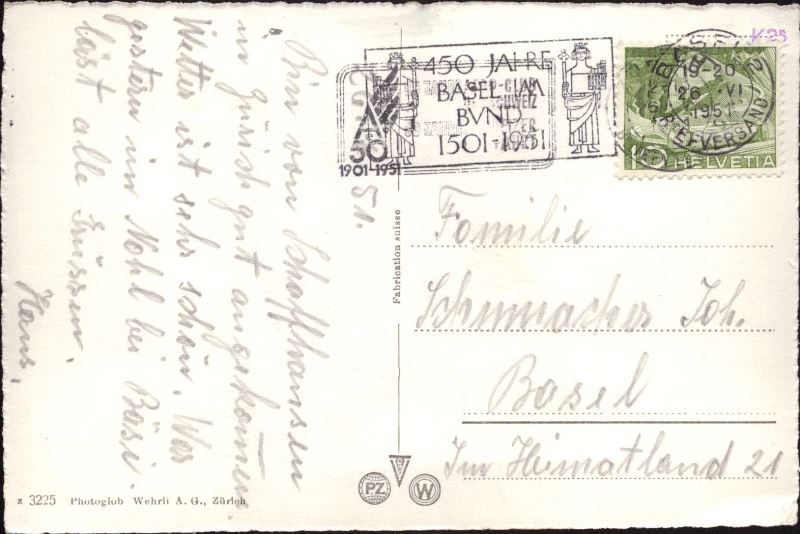 51.
Bin von Schaffhausen
in Zürich gut angekommen.
Wetter ist sehr schön. War
gestern im Mohl bei Bäsi.
lässt alle Grüssen.
Hans.
450 JAHRE
BASEL IM
BVND
1501-1951
50
1901-1951
K25
BASEL 2
19-20
26. VI
1951
BRIEFVERSAND
10 HELVETIA
Fabrication suisse
Familie
Schumacher Joh.
Basel
Im Heimatland 21
PZ
W
z 3225 Photoglob Wehrli A. G., Zürich